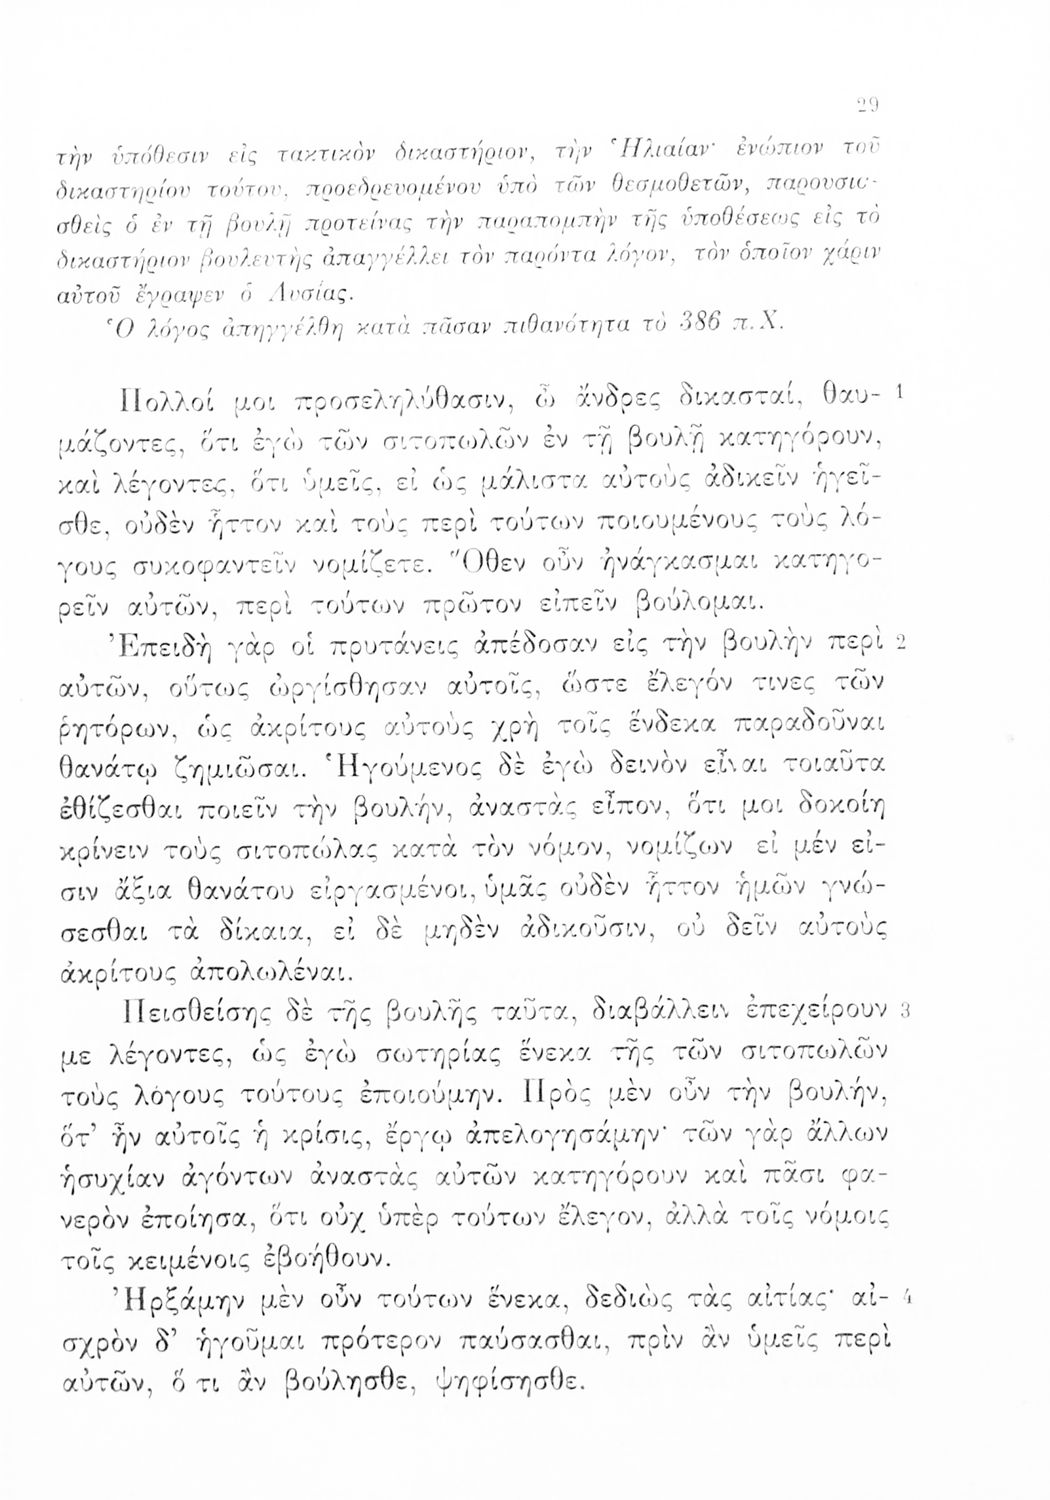 29
τὴν ὑπόθεσιν εἰς τακτικὸν δικαστήριον, τὴν Ἡλιαίαν· ἐνώπιον τοῦ
δικαστηρίου τούτου, προεδρευομένου ὑπὸ τῶν θεσμοθετῶν, παρουσια-
σθεὶς ὁ ἐν τῇ βουλῇ προτείνας τὴν παραπομπὴν τῆς ὑποθέσεως εἰς τὸ
δικαστήριον βουλευτὴς ἀπαγγέλλει τὸν παρόντα λόγον, τὸν ὁποῖον χάριν
αὐτοῦ ἔγραψεν ὁ Λυσίας.
Ὁ λόγος ἀπηγγέλθη κατὰ πᾶσαν πιθανότητα τὸ 386 π.Χ.
Πολλοί μοι προσεληλύθασιν, ὦ ἄνδρες δικασταί, θαυ- 1
μάζοντες, ὅτι ἐγὼ τῶν σιτοπωλῶν ἐν τῇ βουλῇ κατηγόρουν,
καὶ λέγοντες, ὅτι ὑμεῖς, εἰ ὡς μάλιστα αὐτοὺς ἀδικεῖν ἡγεῖ-
σθε, οὐδὲν ἧττον καὶ τοὺς περὶ τούτων ποιουμένους τοὺς λό-
γους συκοφαντεῖν νομίζετε. Ὅθεν οὖν ἠνάγκασμαι κατηγο-
ρεῖν αὐτῶν, περὶ τούτων πρῶτον εἰπεῖν βούλομαι.
Ἐπειδὴ γὰρ οἱ πρυτάνεις ἀπέδοσαν εἰς τὴν βουλὴν περὶ 2
αὐτῶν, οὕτως ὠργίσθησαν αὐτοῖς, ὥστε ἔλεγόν τινες τῶν
ῥητόρων, ὡς ἀκρίτους αὐτοὺς χρὴ τοῖς ἕνδεκα παραδοῦναι
θανάτῳ ζημιῶσαι. Ἡγούμενος δὲ ἐγὼ δεινὸν εἶναι τοιαῦτα
ἐθίζεσθαι ποιεῖν τὴν βουλήν, ἀναστὰς εἶπον, ὅτι μοι δοκοίη
κρίνειν τοὺς σιτοπώλας κατὰ τὸν νόμον, νομίζων εἰ μέν εἰ-
σιν ἄξια θανάτου εἰργασμένοι, ὑμᾶς οὐδὲν ἧττον ἡμῶν γνώ-
σεσθαι τὰ δίκαια, εἰ δὲ μηδὲν ἀδικοῦσιν, οὐ δεῖν αὐτοὺς
ἀκρίτους ἀπολωλέναι.
Πεισθείσης δὲ τῆς βουλῆς ταῦτα, διαβάλλειν ἐπεχείρουν 3
με λέγοντες, ὡς ἐγὼ σωτηρίας ἕνεκα τῆς τῶν σιτοπωλῶν
τοὺς λόγους τούτους ἐποιούμην. Πρὸς μὲν οὖν τὴν βουλήν,
ὅτ’ ἦν αὐτοῖς ἡ κρίσις, ἔργῳ ἀπελογησάμην· τῶν γὰρ ἄλλων
ἡσυχίαν ἀγόντων ἀναστὰς αὐτῶν κατηγόρουν καὶ πᾶσι φα-
νερὸν ἐποίησα, ὅτι οὐχ ὑπὲρ τούτων ἔλεγον, ἀλλὰ τοῖς νόμοις
τοῖς κειμένοις ἐβοήθουν.
Ἠρξάμην μὲν οὖν τούτων ἕνεκα, δεδιὼς τὰς αἰτίας· αἰ- 4
σχρὸν δ’ ἡγοῦμαι πρότερον παύσασθαι, πρὶν ἂν ὑμεῖς περὶ
αὐτῶν, ὅ τι ἂν βούλησθε, ψηφίσησθε.